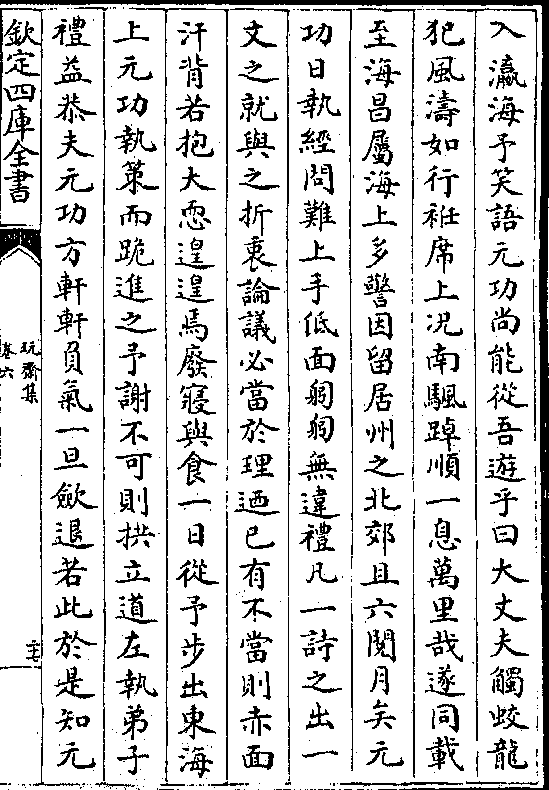 入瀛海予笑語元功尚能從吾遊乎曰大丈夫觸蛟龍
犯風濤如行袵席上况南颿踔順一息萬里哉遂同載
至海昌屬海上多警因留居州之北郊且六閱月矣元
功日執經問難上手低面躬躬無違禮凡一詩之出一
文之就與之折衷論議必當於理廼已有不當則赤面
汗背若抱大恧遑遑焉廢寢與食一日從予步出東海
上元功執策而跪進之予謝不可則拱立道左執弟子
禮益恭夫元功方軒軒負氣一旦歛退若此於是知元
欽定四庫全書
玩齋集
卷六